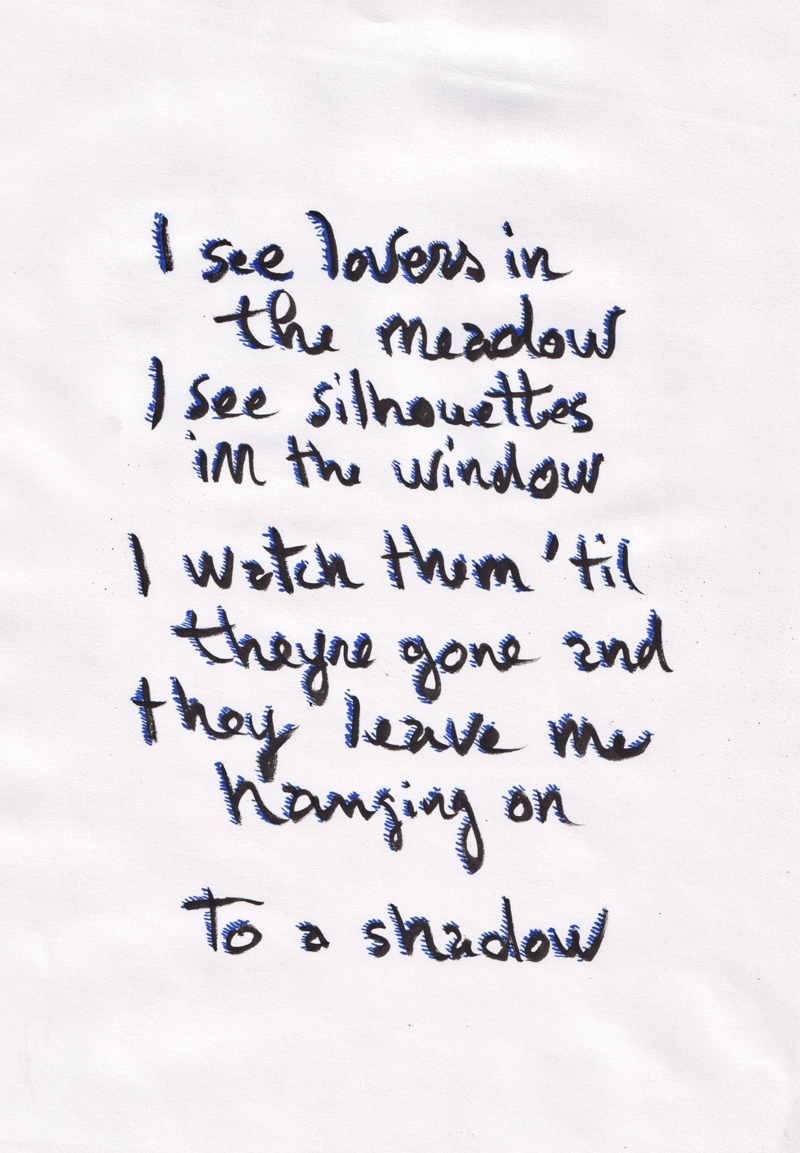 I see lovers in
the meadow
I see silhouettes
in the window
I watch them 'til
theyre gone and
they leave me
hanging on
To a shadow